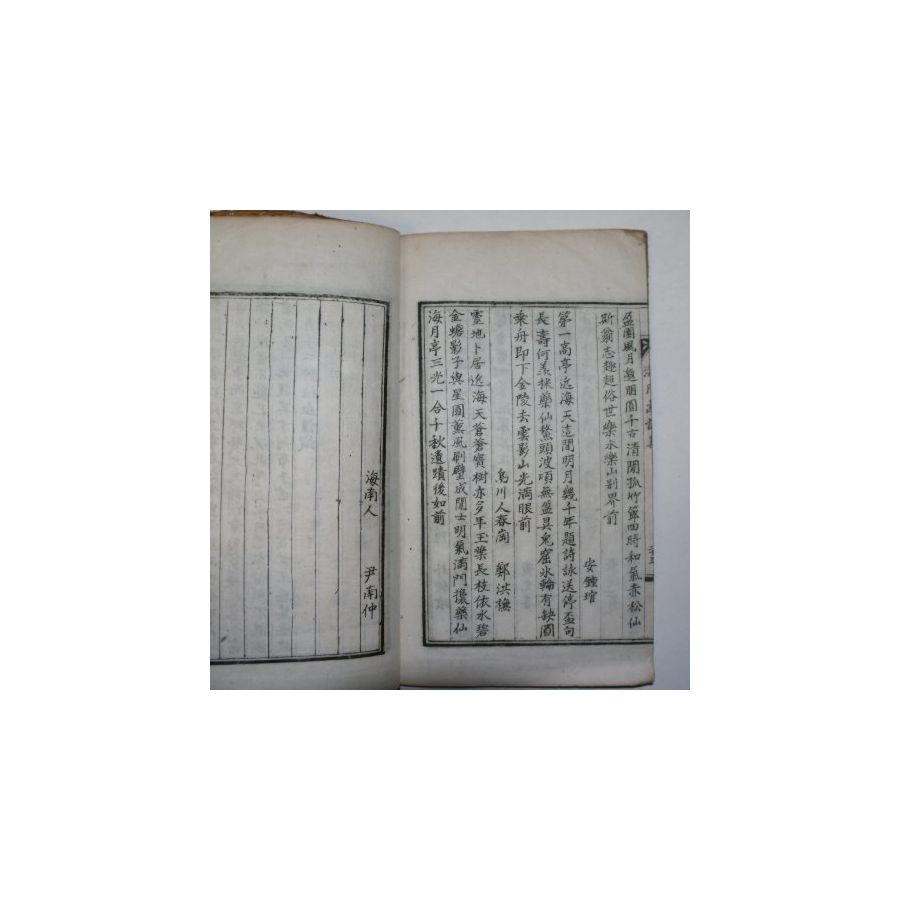 盈園風月邀朋圓千古清閒孤竹節四時和氣赤松仙
斯翁志趣超俗世樂水樂山別界前
安鍾瑄
第一高亭近海天這間明月幾千年題詩詠送停盃句
長壽何羨採藥仙鰲頭波項無盈昃兎窟氷輪有缺圓
乘舟即下金陵去雲影山光滿眼前
烏川人春崗 鄭洪
靈地卜居近海天蒼蒼寶樹亦多年玉葉長枝依水碧
金蟾影子與星圓薰風刷壁成閒士明氣滿門攘藥仙
海月亭三光一合千秋遺蹟後如前
海南人 尹南仲